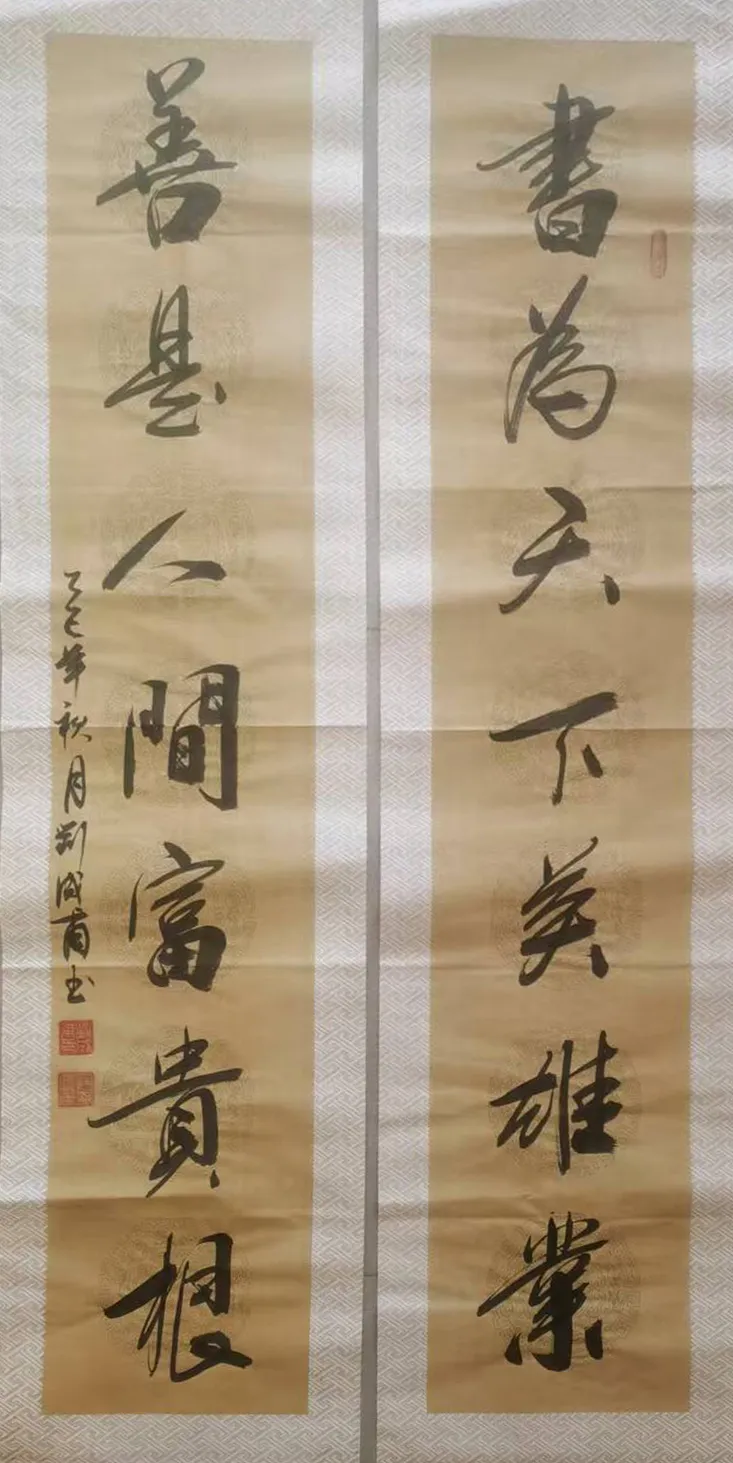 書為天下英雄業
善是人間富貴根
乙巳年秋月劉成甫书